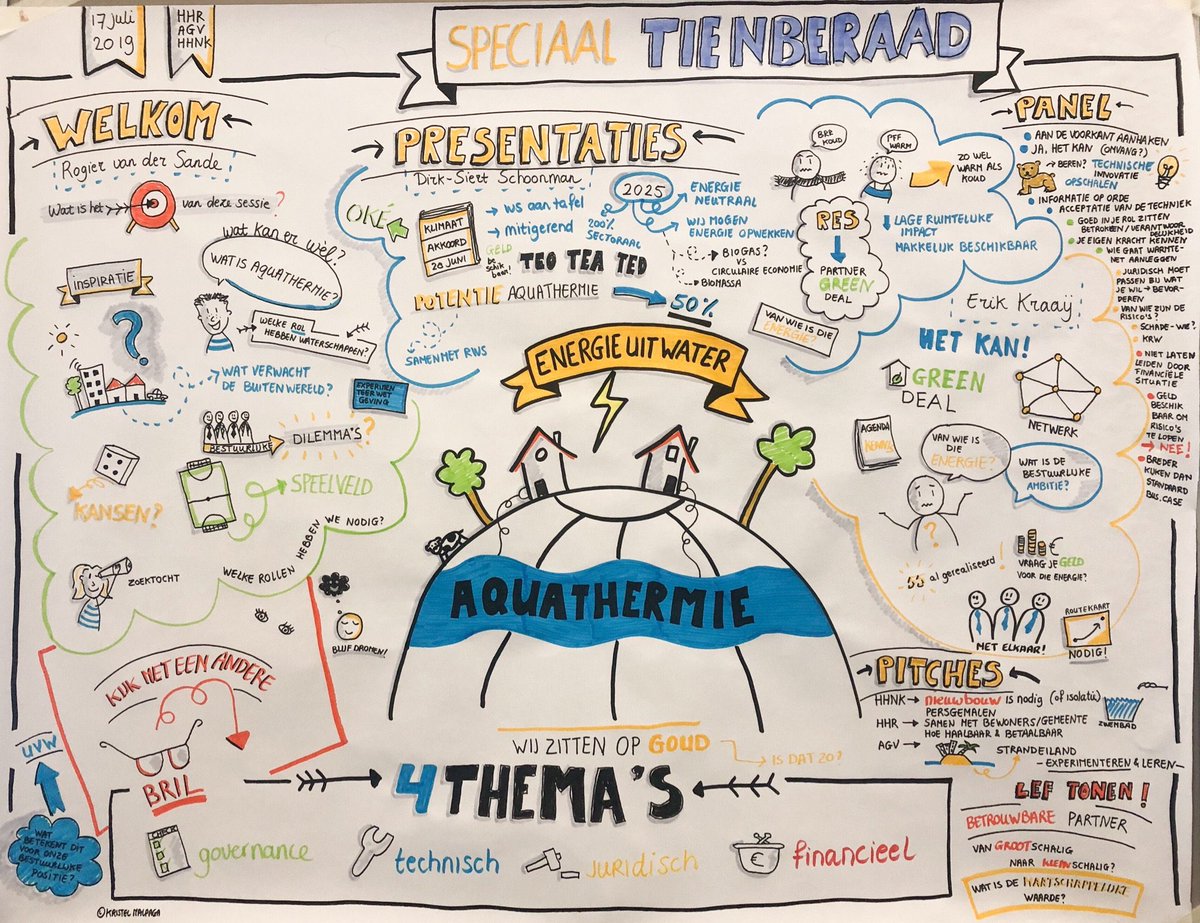 17 juli
2019
HHR
AGV
HHNK
SPECIAAL TIENBERAAD
WELKOM
Rogier van der Sande
Wat is het
van deze sessie?
wat kan er wel?
WAT IS AQUATHERMIE?
inspiratie
?
WELKE ROL
HEBBEN WATERSCHAPPEN?
WAT VERWACHT
DE BUITENWERELD?
EXPERIMEN
TEER WET
GEVING
BESTUURLIJKE
DILEMMA'S?
KANSEN?
SPEELVELD
ZOEKTOCHT
WELKE ROLLEN HEBBEN WE NODIG?
BLIJF DROMEN!
KIJK MET EEN ANDERE
BRIL
UVW
WAT
BETEKENT DIT
VOOR ONZE
BESTUURLIJKE
POSITIE?
PRESENTATIES
Dirk-Siert Schoonman
OKÉ
KLIMAAT
AKKOORD
28 JUNI
GELD
be
schik
baar!
WS aan tafel
mitigerend
200%
SECTORAAL
2025
ENERGIE
NEUTRAAL
WIJ MOGEN
ENERGIE OPWEKKEN
BIOGAS?
VS
CIRCULAIRE ECONOMIE
BIOMASSA
TEO TEA TED
POTENTIE AQUATHERMIE
50%
SAMEN MET RWS
BRR
KOUD
PFF
WARM
ZO WEL
WARM ALS
KOUD
RES
PARTNER
GREEN
DEAL
LAGE RUIMTELIJKE
IMPACT
MAKKELIJK BESCHIKBAAR
VAN WIE IS DIE
ENERGIE?
ENERGIE UIT WATER
AQUATHERMIE
WIJ ZITTEN OP GOUD
IS DAT ZO?
Erik Kraaij
HET KAN!
GREEN
DEAL
NETWERK
AGENDA
VAN WIE IS
DIE
ENERGIE?
WAT IS DE
BESTUURLIJKE
AMBITIE?
?
al gerealiseerd!
€
VRAAG JE GELD
VOOR DIE ENERGIE?
MET ELKAAR!
ROUTEKAART
NODIG!
PANEL
AAN DE VOORKANT AANHAKEN
JA, HET KAN (OMVANG?)
BEREN? TECHNISCHE
INNOVATIE
OPSCHALEN
INFORMATIE OP ORDE
ACCEPTATIE VAN DE TECHNIEK
GOED IN JE ROL ZITTEN
BETROKKEN/VERANTWOOR
DELIJKHEID
JE EIGEN KRACHT KENNEN
WIE GAAT WARMTE-
NET AANLEGGEN
JURIDISCH MOET
PASSEN BIJ WAT
JE WIL → BEVOR-
DEREN
VAN WIE ZIJN DE
RISICO'S?
SCHADE - WIE?
KRW
NIET LATEN
LEIDEN DOOR
FINANCIËLE
SITUATIE
GELD
BESCHIK
BAAR OM
RISICO'S
TE LOPEN
→ NEE!
BREDER
KIJKEN DAN
STANDAARD
BUS.CASE
PITCHES
HHNK → nieuwbouw is nodig (of isolatie)
PERSGEMALEN
ZWEMBAD
HHR → SAMEN MET BEWONERS/GEMEENTE
HOE HAALBAAR & BETAALBAAR
AGV →
STRANDEILAND
- EXPERIMENTEREN & LEREN -
LEF TONEN!
BETROUWBARE PARTNER
VAN GROOTSCHALIG
NAAR KLEINSCHALIG?
WAT IS DE MAATSCHAPPELIJKE
WAARDE?
4 THEMA'S
CHECK
governance
technisch
juridisch
€
financieel